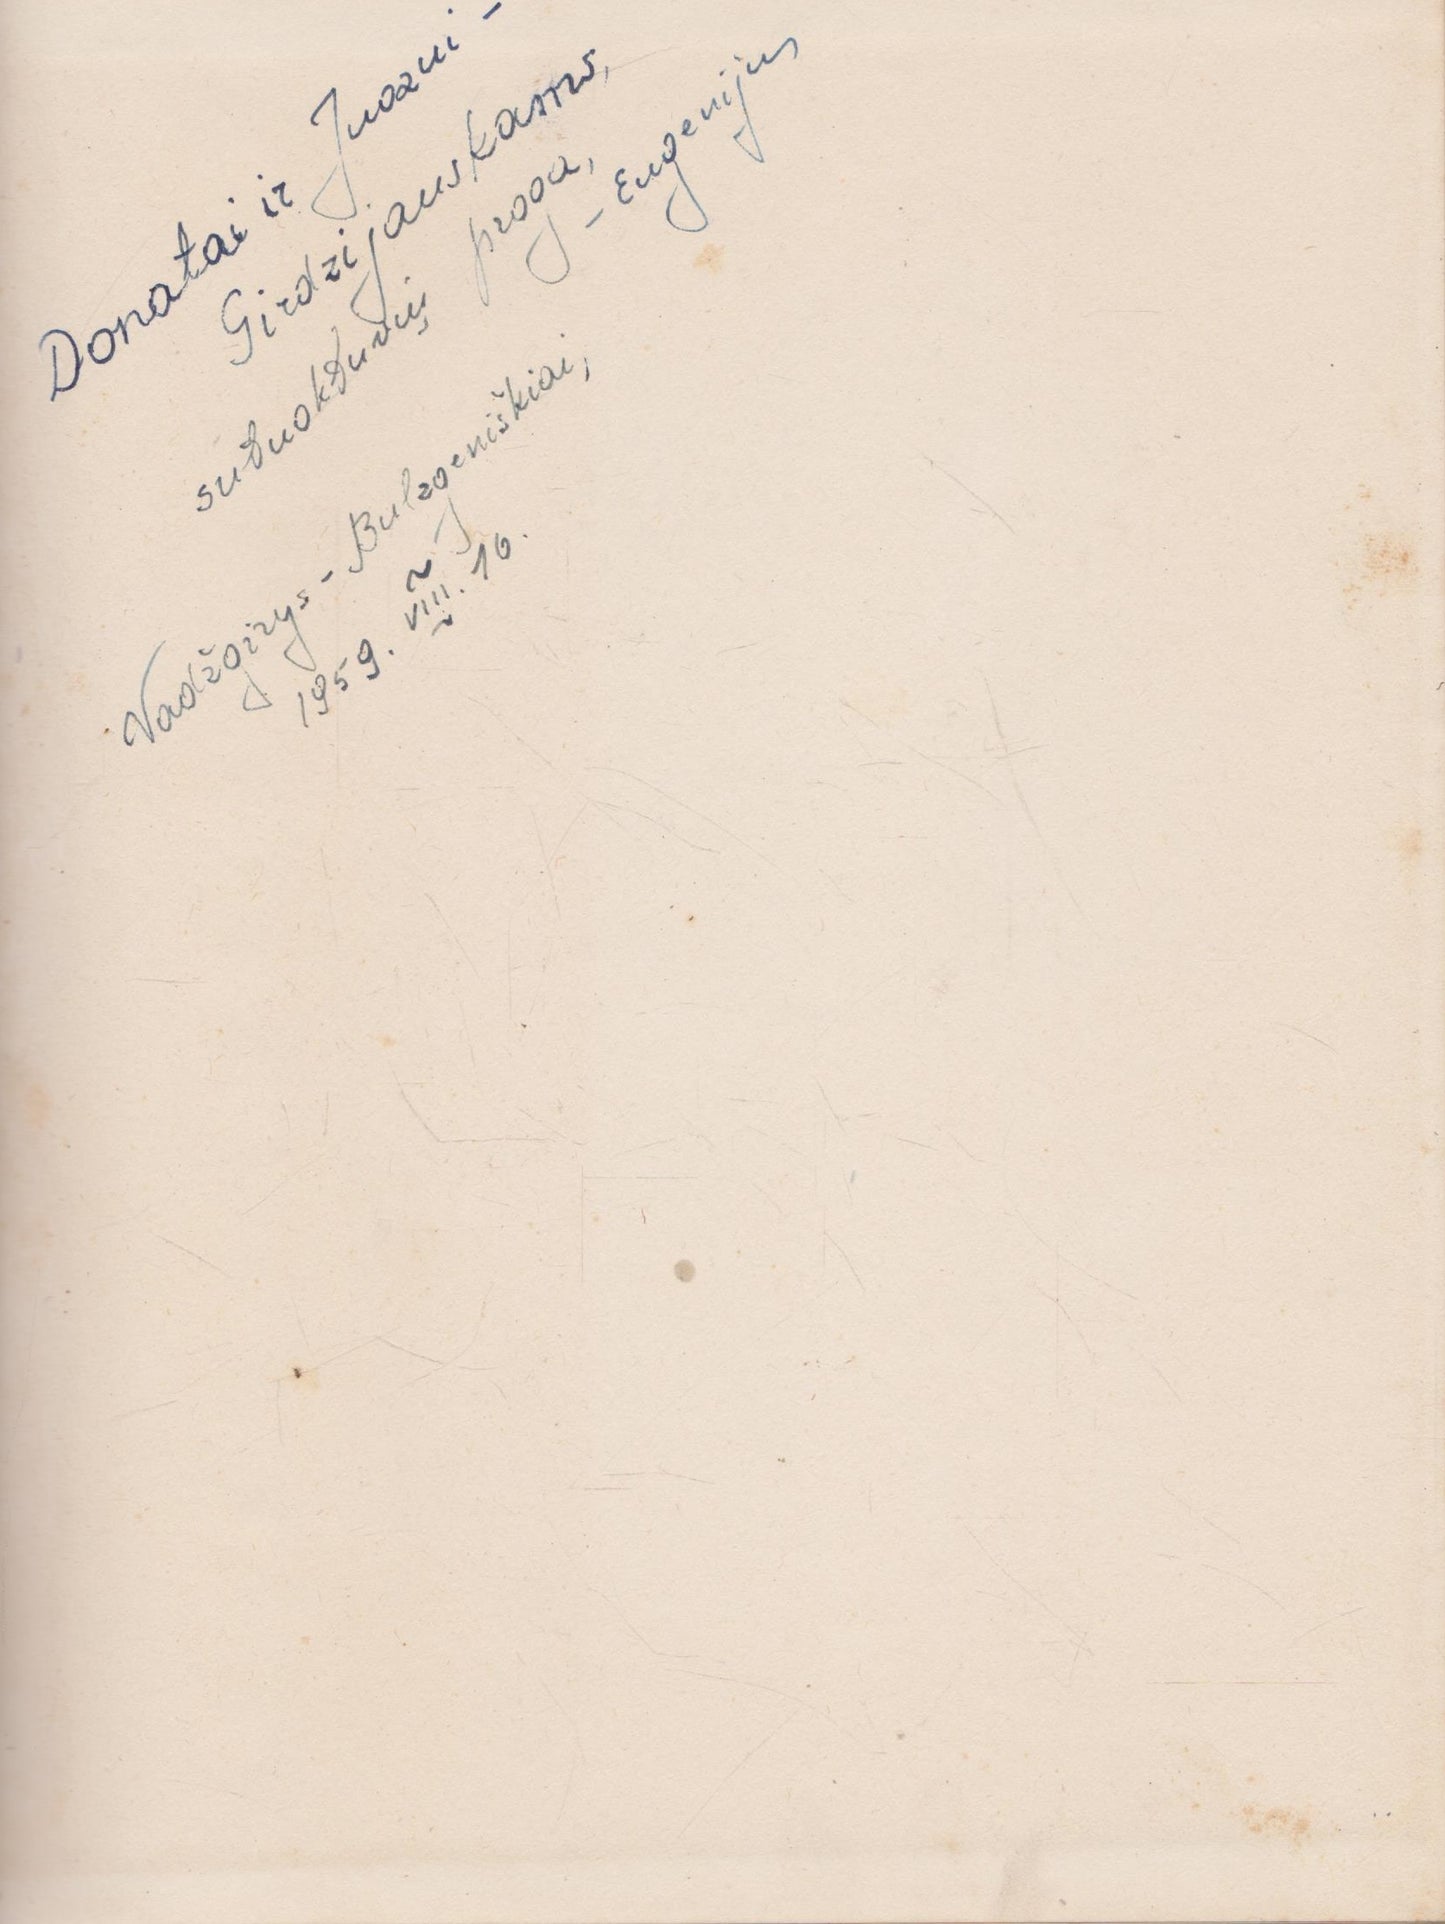 Donatai ir Juozui -
Girdzijauskams,
sutuoktuvių proga,
- Eugenijus
Vadžgirys - Bulzgeniškiai,
1959. VIII. 16.